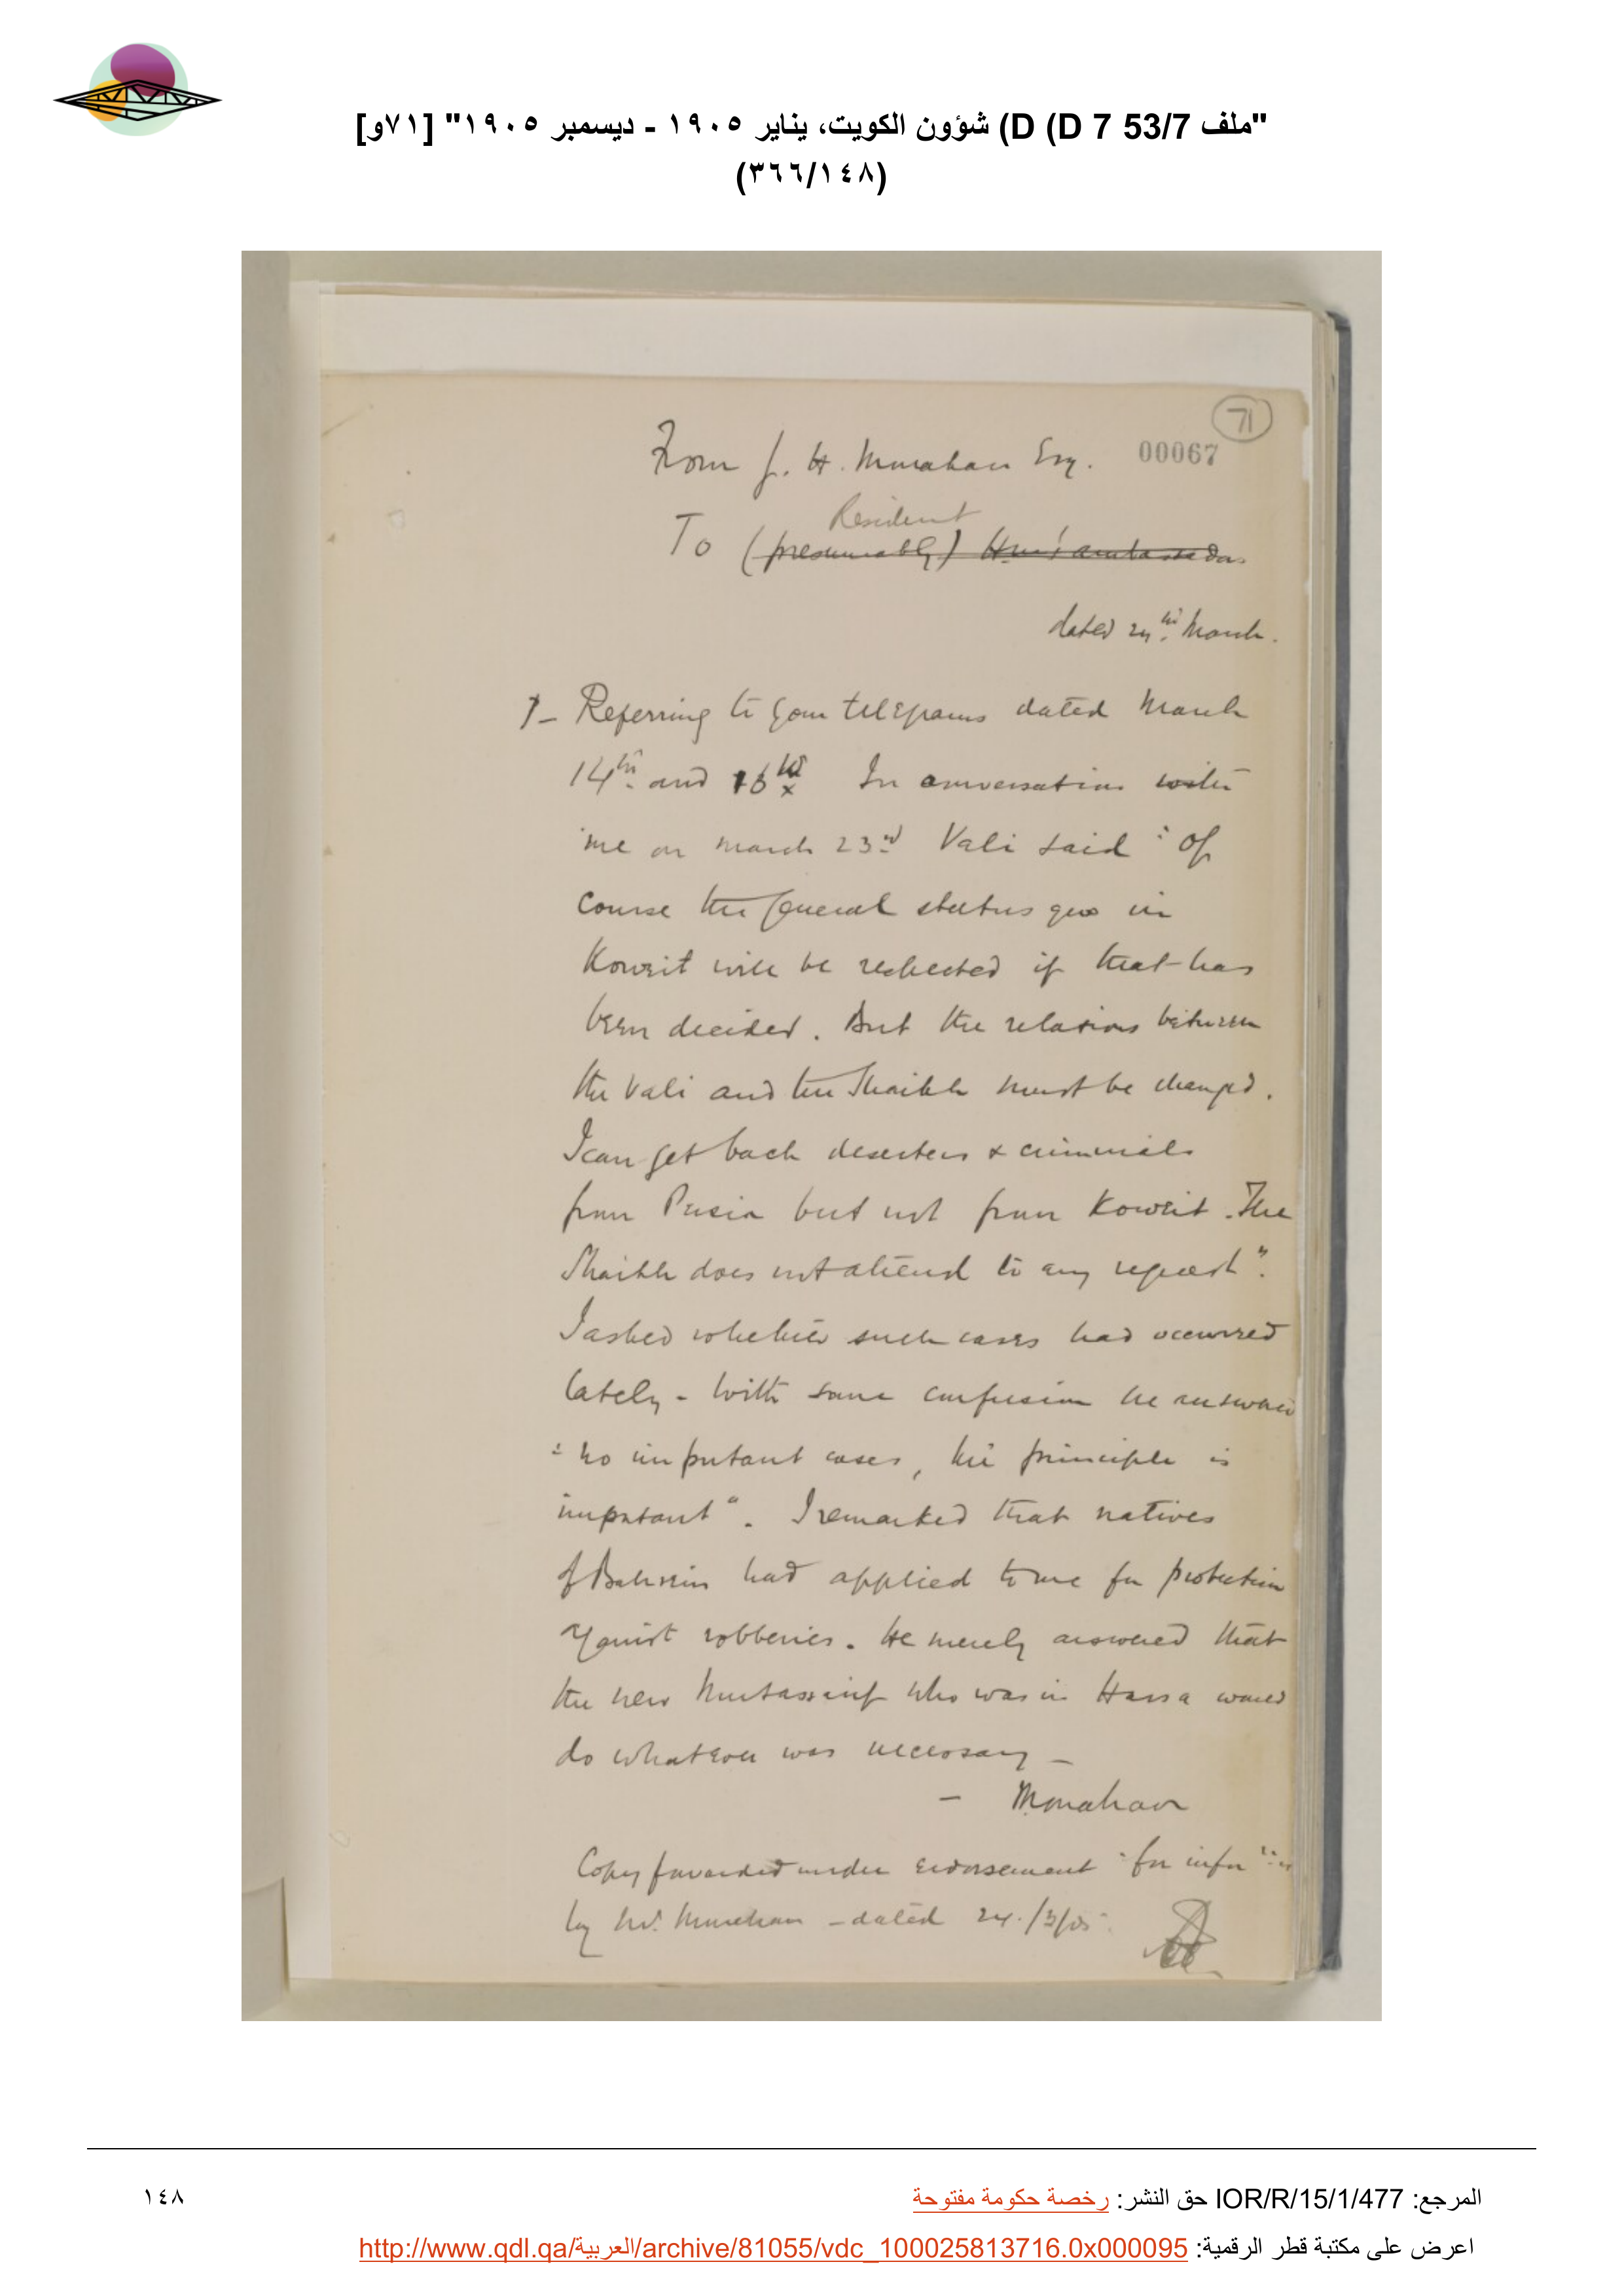 "ملف 53/7 D 7) D) شؤون الكويت، يناير ١٩٠٥ - ديسمبر ١٩٠٥" [٧١و]
(٣٦٦/١٤٨)
71
00067
From J. H. Monahan Esq.
Resident
To (presumably) H.M's ambassador
dated 24th March.
1- Referring to your telegrams dated March
14th and 16th x In conversation with
me on March 23rd Vali said "Of
course the general status quo in
Koweit will be respected if that has
been decided. But the relations between
the Vali and the Shaikh must be changed.
I can get back deserters & criminals
from Persia but not from Koweit. The
Shaikh does not attend to any request".
I asked whether such cases had occurred
lately - With some confusion he answered
"no important cases, the principle is
important". I remarked that natives
of Bahrein had applied to me for protection
against robberies. He merely answered that
the new Mutassarif who was in Hassa would
do whatever was necessary -
- Monahan
Copy forwarded under endorsement "for infn"
by Mr. Monahan - dated 24/3/05.
المرجع: IOR/R/15/1/477 حق النشر: رخصة حكومة مفتوحة
١٤٨
اعرض على مكتبة قطر الرقمية: http://www.qdl.qa/العربية/archive/81055/vdc_100025813716.0x000095